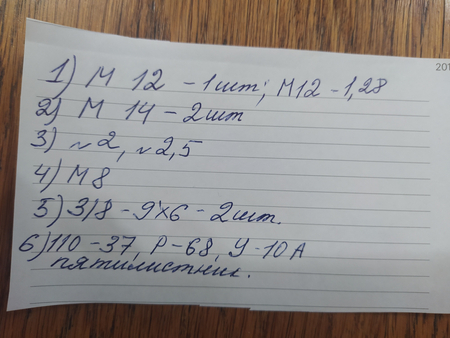 201
1) М 12 - 1 шт; М12 - 1,28
2) М 14 - 2 шт
3) ~2, ~2,5
4) М8
5) 3/8 - 9х6 - 2 шт.
6) 110 - 37, Р - 68, У - 10 А
пятилистник.